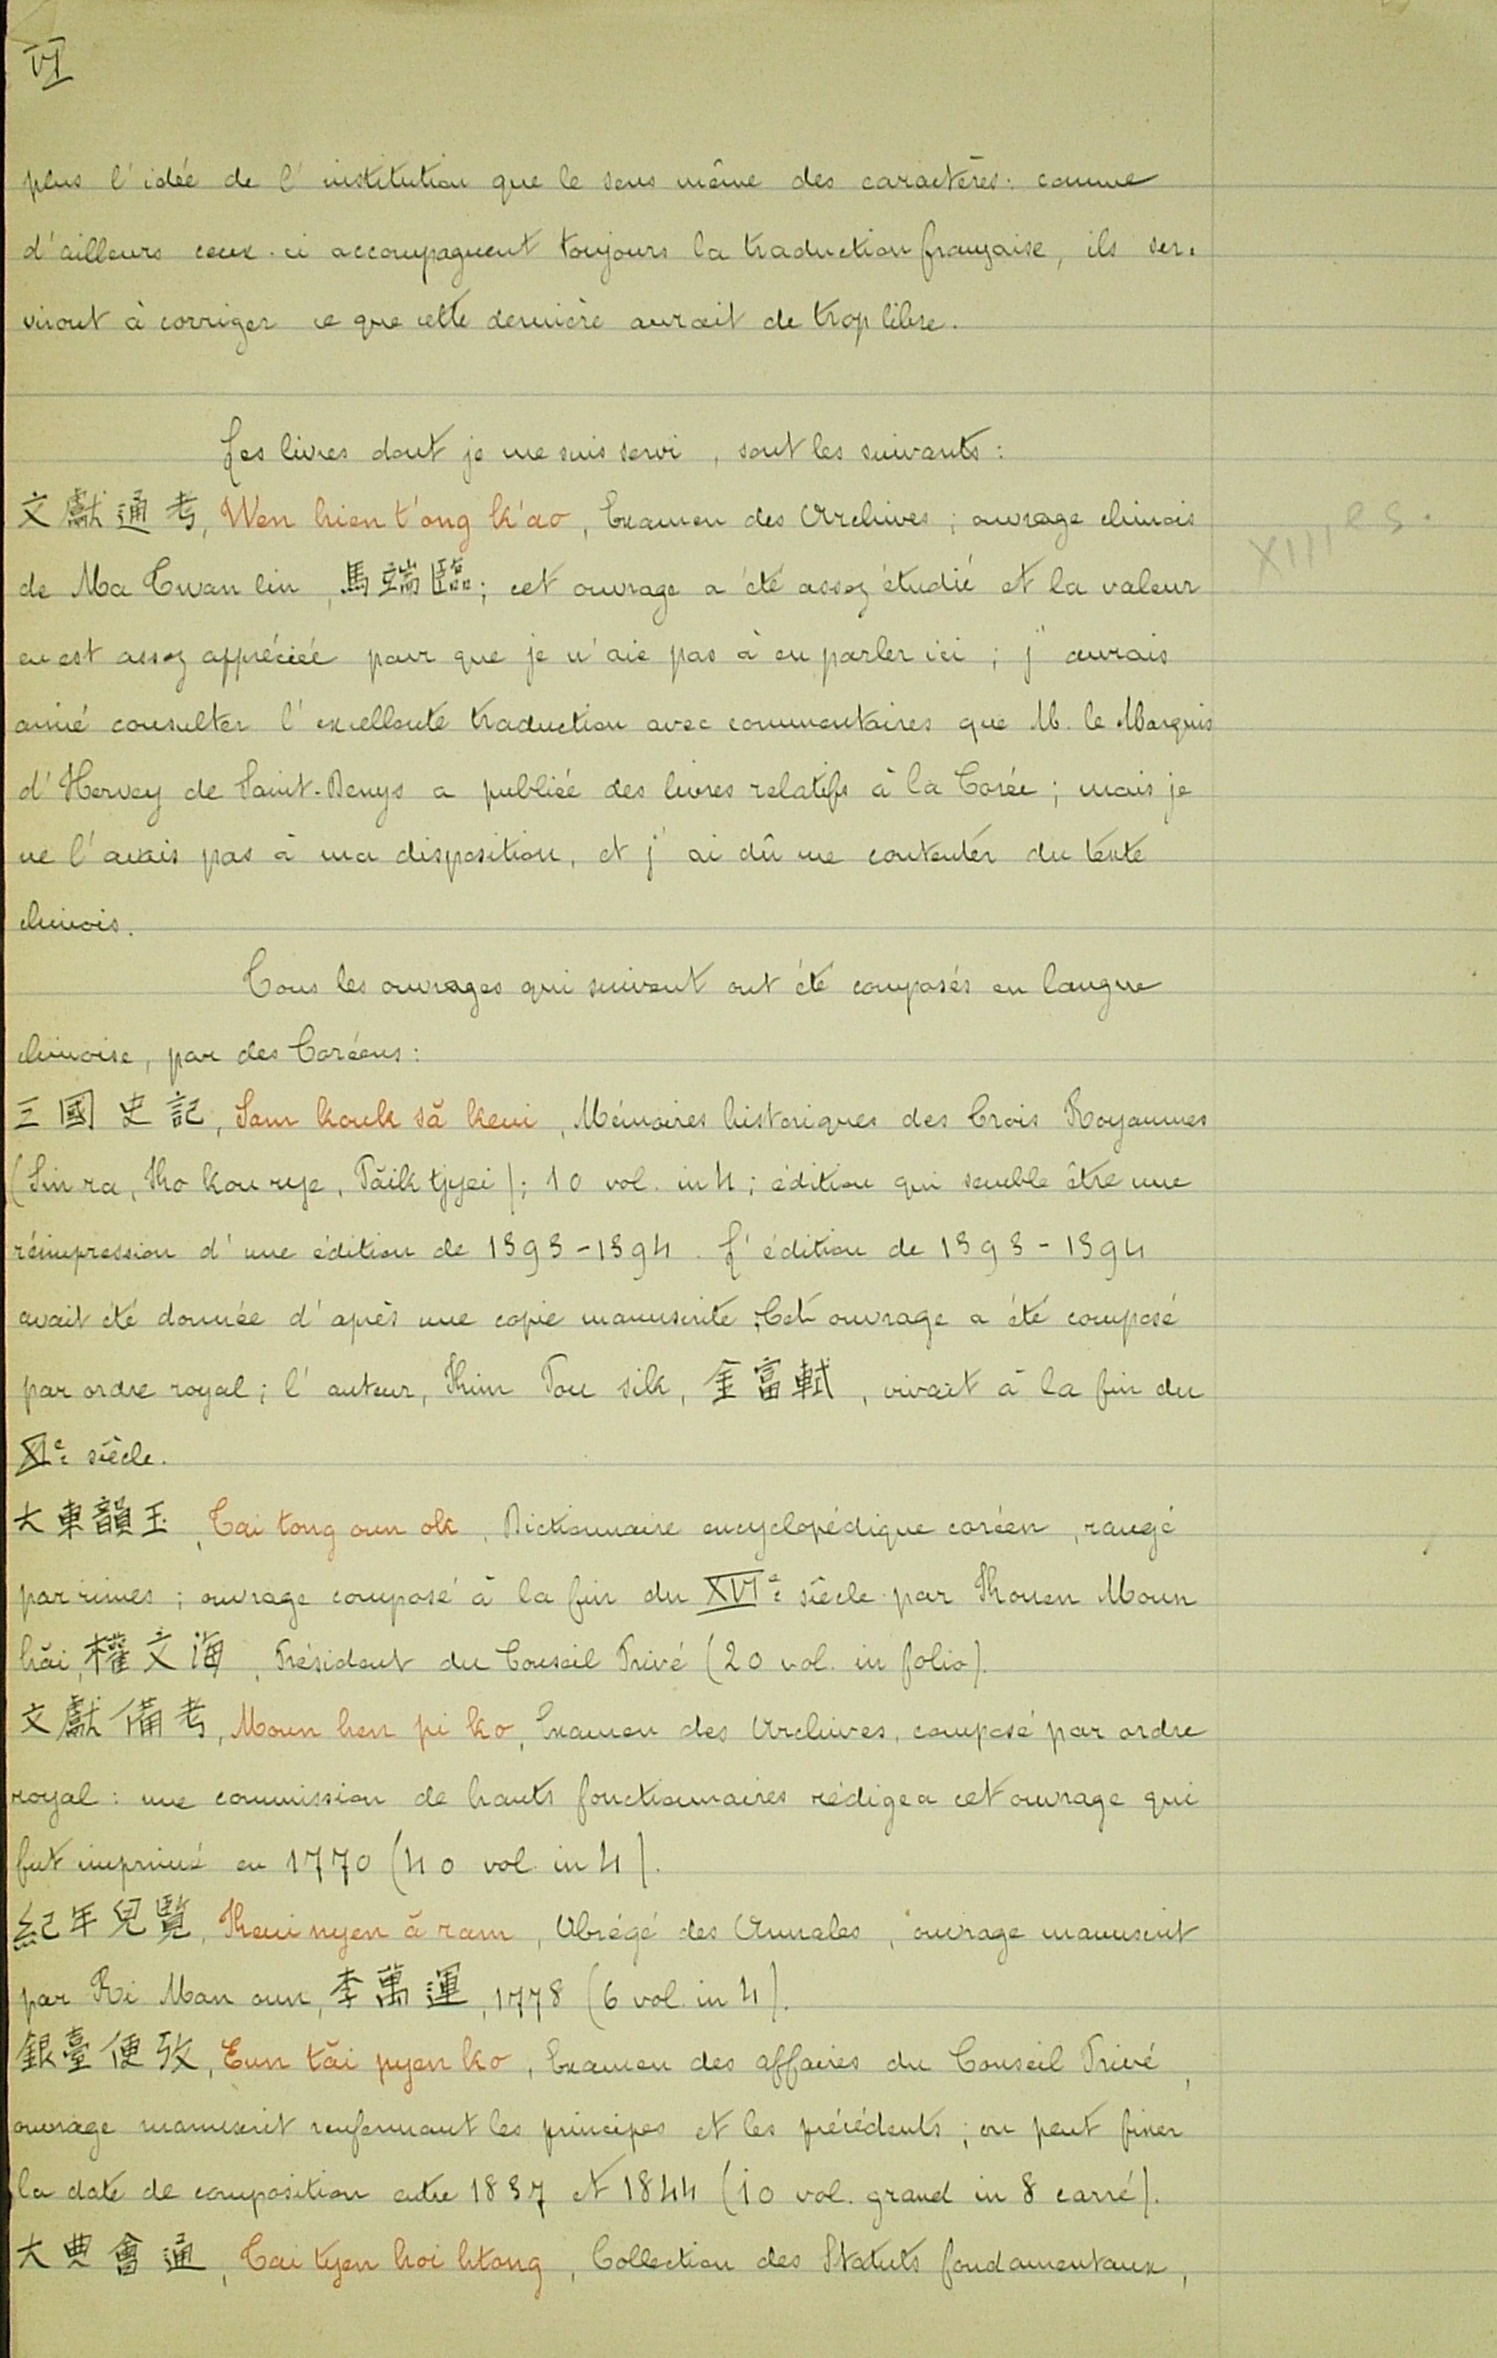 VI
plus l'idée de l'institution que le sens même des caractères: comme
d'ailleurs ceux-ci accompagnent toujours la traduction française, ils ser-
viront à corriger ce que cette dernière aurait de trop libre.
Les livres dont je me suis servi, sont les suivants:
文獻通考, Wen hien t'ong k'ao, Examen des Archives; ouvrage chinois
XIIIe s.
de Ma Twan lin, 馬端臨; cet ouvrage a été assez étudié et la valeur
en est assez appréciée pour que je n'aie pas à en parler ici; j'aurais
aimé consulter l'excellente traduction avec commentaires que M. le Marquis
d'Hervey de Saint-Denys a publiée des livres relatifs à la Corée; mais je
ne l'avais pas à ma disposition, et j'ai dû me contenter du texte
chinois.
Tous les ouvrages qui suivent ont été composés en langue
chinoise, par des Coréens:
三國史記, Sam kouk să keui, Mémoires historiques des Trois Royaumes
(Sin ra, Kho kou rye, Păik tjyei); 10 vol. in 4; édition qui semble être une
réimpression d'une édition de 1393-1394. L'édition de 1393-1394
avait été donnée d'après une copie manuscrite. Cet ouvrage a été composé
par ordre royal; l'auteur, Kim Pou sik, 金富軾, vivait à la fin du
XIe siècle.
大東韻玉, Tai tong oun ok, Dictionnaire encyclopédique coréen, rangé
par rimes; ouvrage composé à la fin du XVIe siècle par Kouen Moun
hăi, 權文海, Président du Conseil Privé (20 vol. in folio).
文獻備考, Moun hen pi ko, Examen des Archives, composé par ordre
royal: une commission de hauts fonctionnaires rédigea cet ouvrage qui
fut imprimé en 1770 (40 vol. in 4).
紀年兒覽, Keui nyen ă ram, Abrégé des Annales, ouvrage manuscrit
par Ri Man oun, 李萬運, 1778 (6 vol. in 4).
銀臺便攷, Eun tăi pyen ko, Examen des affaires du Conseil Privé,
ouvrage manuscrit renfermant les principes et les précédents; on peut fixer
la date de composition entre 1837 et 1844 (10 vol. grand in 8 carré).
大典會通, Tai tyen hoi htong, Collection des Statuts fondamentaux,